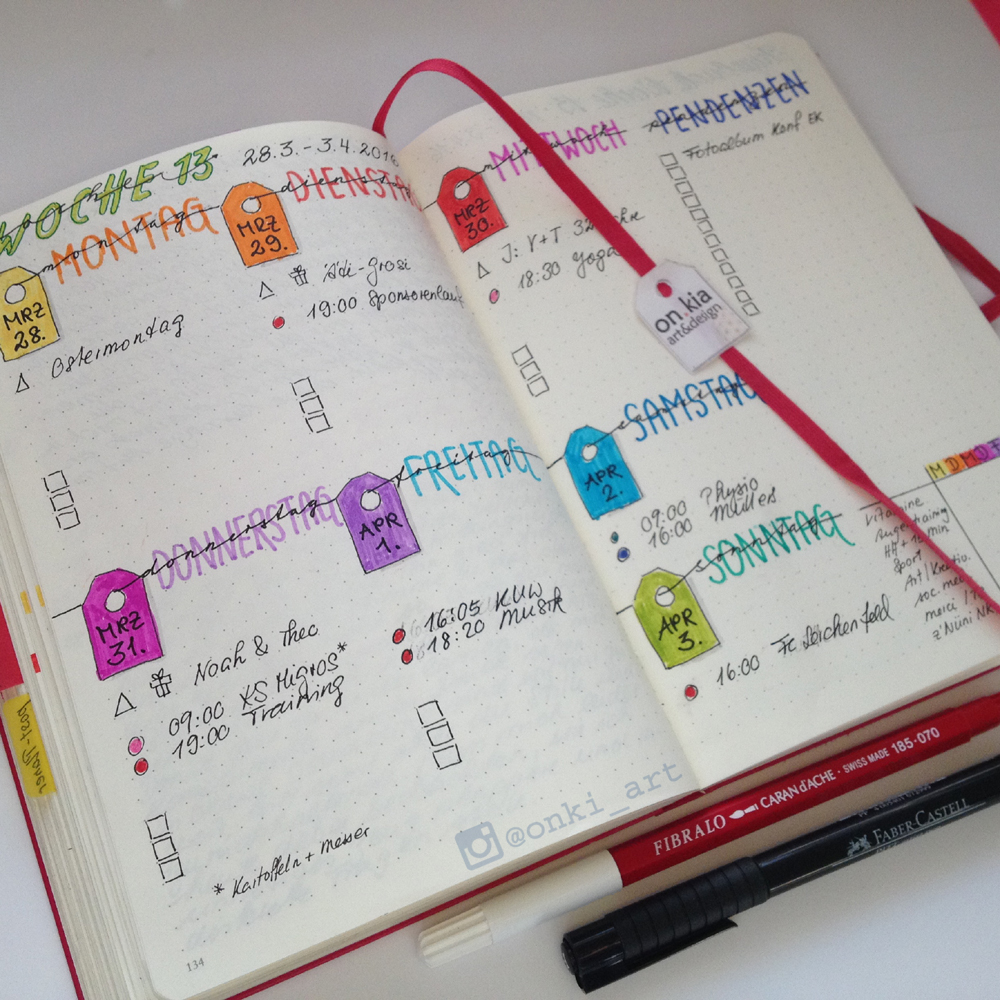 WOCHE 13
28.3. - 3.4.2016
MONTAG
montag
MRZ
28.
Ostermontag
DIENSTAG
dienstag
MRZ
29.
Adi-Grosi
19:00 Sponsorenlauf
DONNERSTAG
donnerstag
MRZ
31.
Noah & Theo
09:00 KS MIGROS*
19:00 Training
* Kartoffeln + Messer
FREITAG
freitag
APR
1.
16:05 KUW
18:20 MUSIK
134
@onki_art
MITTWOCH
mittwoch
MRZ
30.
J: V+T
18:30 Yoga
PENDENZEN
Fotoalbum Konf EK
on.kia
art&design
SAMSTAG
samstag
APR
2.
09:00 Physio
16:00 Müller
SONNTAG
sonntag
APR
3.
16:00 FC Lörchenfeld
M D M D F
Vitamine
Augentraining
Sport
Art / Kreativ.
soc. med
z'Nüni NK
FIBRALO CARAN d'ACHE · SWISS MADE 185-070
FABER-CASTELL